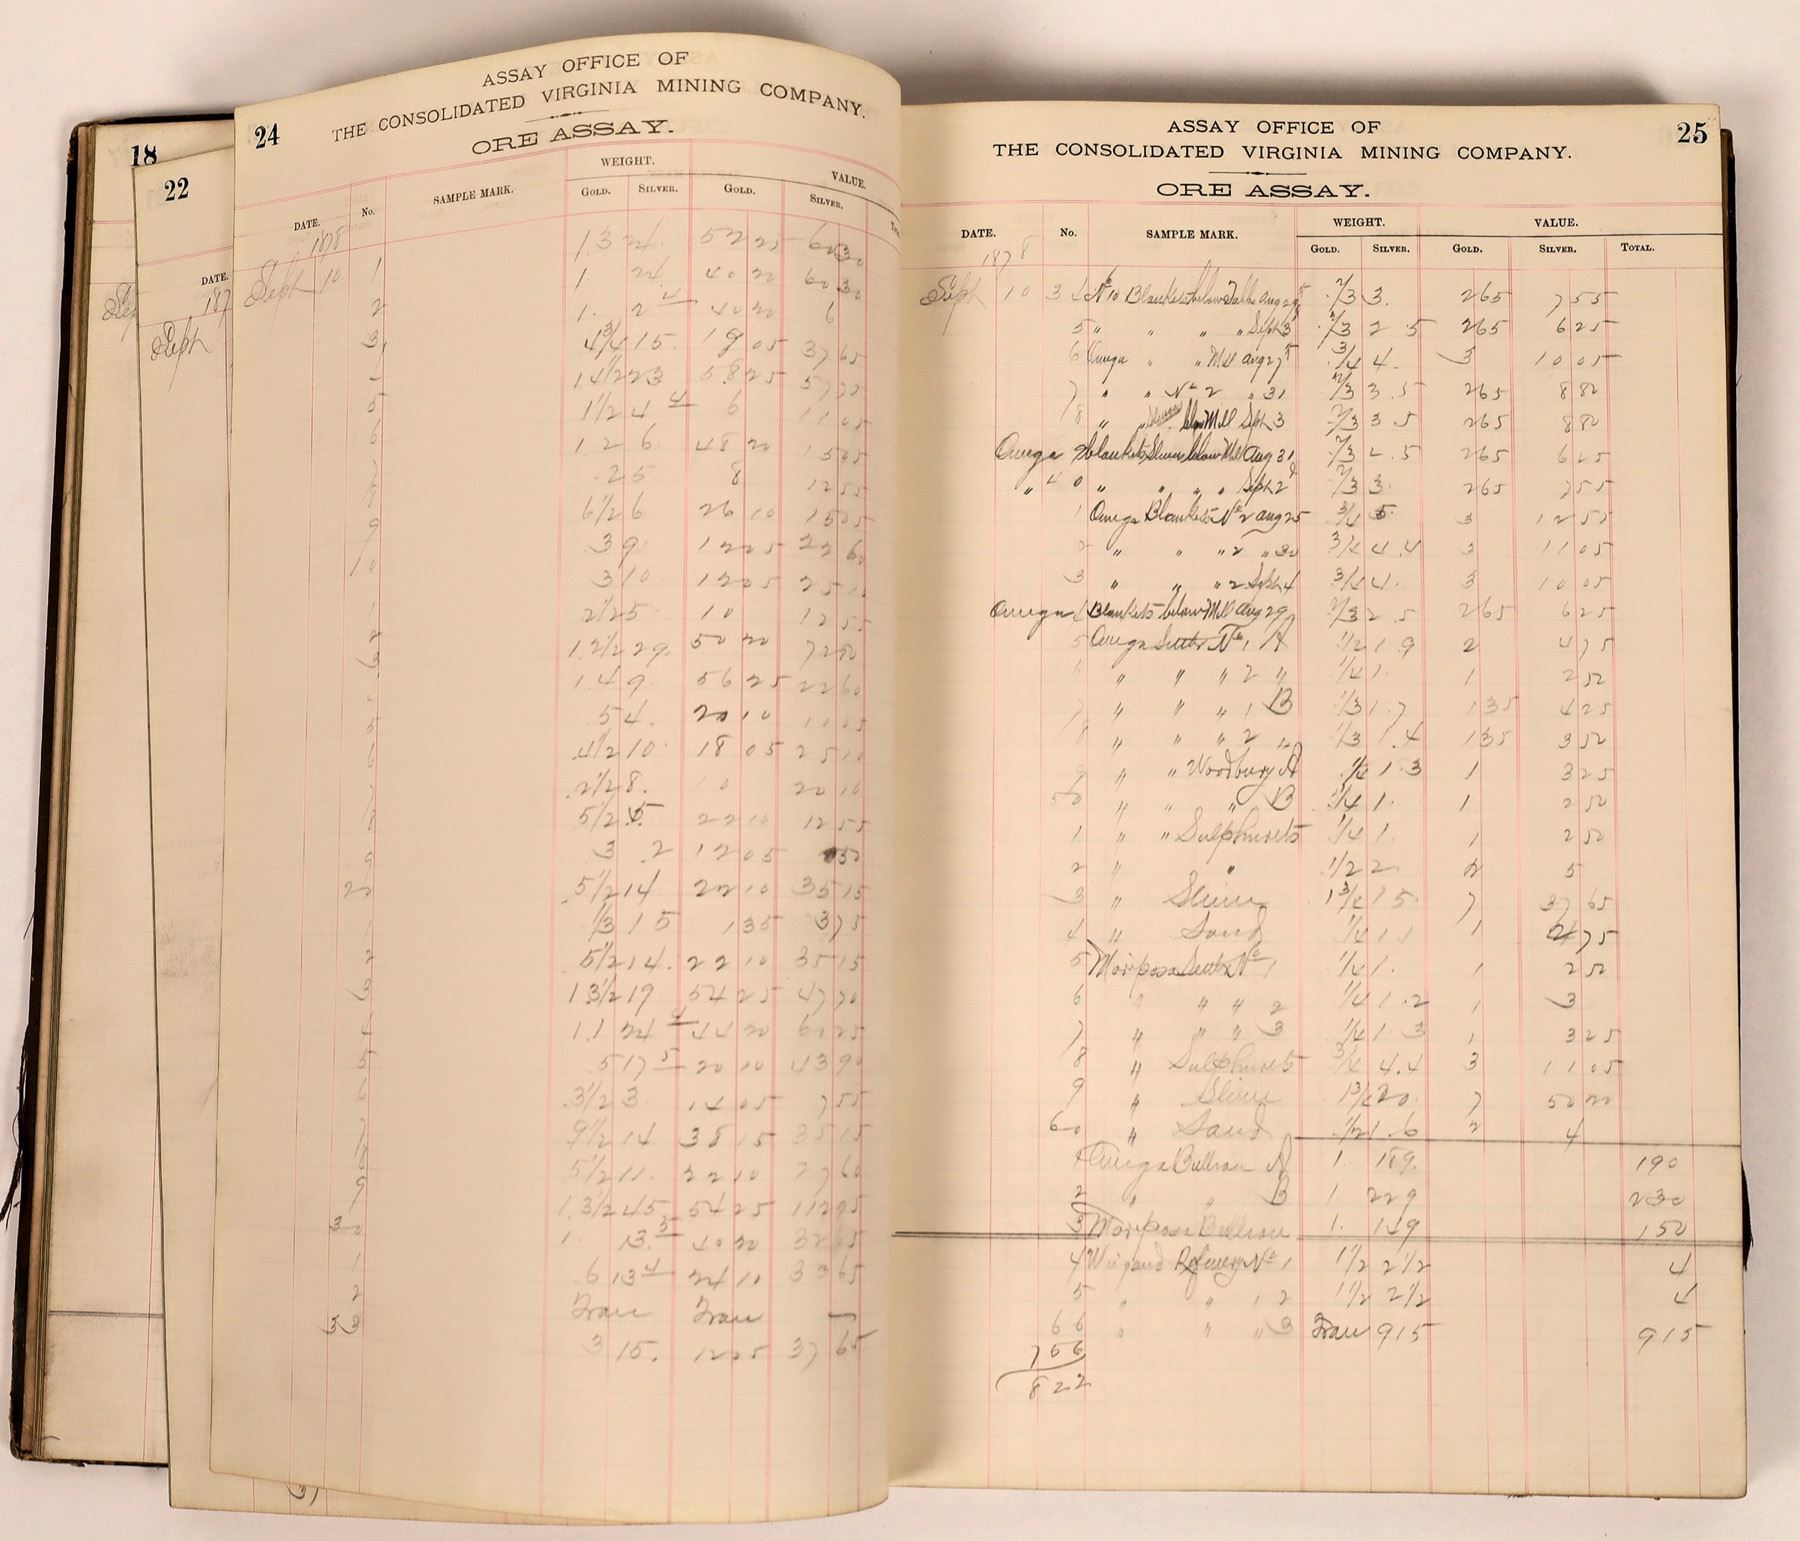 18
22
DATE.
187
Seph
24
ASSAY OFFICE OF
THE CONSOLIDATED VIRGINIA MINING COMPANY.
ORE ASSAY.
WEIGHT. VALUE.
DATE. No. SAMPLE MARK. GOLD. SILVER. GOLD. SILVER.
1878
Seph 10 1 1.3 24. 52 25 60 30
2 1 24 40 20 60 30
3 1. 2 4 40 20 6
4 3/4 15. 19 05 37 65
14 1/2 23 58 25 57 75
5 1 1/2 4 4 6 11 05
6 1.2 6. 48 20 15 05
.2 5 8 12 55
8 6 1/2 6 26 10 15 05
9 3 9. 12 05 22 60
10 3 10. 12 05 25 10
1 2 1/2 5 10 12 55
2 1.2 1/2 29. 50 20 72 80
3 1.4 9. 56 25 22 60
.5 4. 20 10 10 05
5 .4 1/2 10. 18 05 25 10
6 .2 1/2 8. 10 20 10
5 1/2 5. 22 10 12 55
8 3 .2 12 05 50
9 5 1/2 14 22 10 35 15
20 1/3 1 5 1 35 3 75
1 5 1/2 14. 22 10 35 15
2 1 3 1/2 19 54 25 47 70
3 1.1 24 4 44 20 60 25
4 .5 17 5 20 10 43 90
5 .3 1/2 3. 14 05 7 55
6 9 1/2 14 38 15 35 15
5 1/2 11. 22 10 27 60
8 1.3 1/2 45 54 25 112 95
9 1. 13. 5 40 20 32 65
30 .6 13 4 24 10 33 65
1 Trace Trace —
2 3 15. 12 05 37 65
33
25
ASSAY OFFICE OF
THE CONSOLIDATED VIRGINIA MINING COMPANY.
ORE ASSAY.
WEIGHT. VALUE.
DATE. No. SAMPLE MARK. GOLD. SILVER. GOLD. SILVER. TOTAL.
1878
Seph 10 34 No 10 Blankets below Aug 29 2/3 3. 2 65 7 55
5 " " " " Seph 3 2/3 2 5 2 65 6 25
6 Omega " " Mill Aug 27 3/4 4. 3 10 05
7 " " No 2 " 31 2/3 3.5 2 65 8 80
8 " " below Mill Seph 3 2/3 3.5 2 65 8 80
Omega 9 blankets below Mill Aug 31 2/3 2.5 2 65 6 25
" 40 " " " " Seph 2 2/3 3. 2 65 7 55
1 Omega Blankets No 2 Aug 25 3/4 5. 3 12 55
2 " " " 2 " 30 3/4 4.4 3 11 05
3 " " " 2 Seph 4 3/4 4. 3 10 05
Omega 4 Blankets below Mill Aug 29 2/3 2.5 2 65 6 25
5 Omega No 1 A 1/2 1.9 2 4 75
6 " " " 2 " 1/4 1. 1 2 50
7 " " " 1 B 1/3 1.7 1 35 4 25
8 " " " 2 " 1/3 1.4 1 35 3 50
9 " " Woodbury A 1/4 1.3 1 3 25
50 " " " B 1/4 1. 1 2 50
1 " " Sulphurets 1/4 1. 1 2 50
2 " " 1/2 2 2 5
3 " Slime 1 3/4 15. 7 37 65
4 " Sand 1/4 1 1 1 2 75
5 Mariposa No 1 1/4 1. 1 2 50
6 " " " 2 1/4 1.2 1 3
7 " " " 3 1/4 1 3 1 3 25
8 " Sulphurets 3/4 4.4 3 11 05
9 " Slime 1 3/4 20. 7 50 20
60 " Sand 1/2 1.6 2 4
1 Omega Bullion A 1. 189. 190
2 " " B 1. 229 230
3 Mariposa Bullion 1. 149 150
4 Wiegand Refinery No 1 1 1/2 2 1/2 4
5 " " " 2 1 1/2 2 1/2 4
66 " " " 3 Trace 915 915
756
822